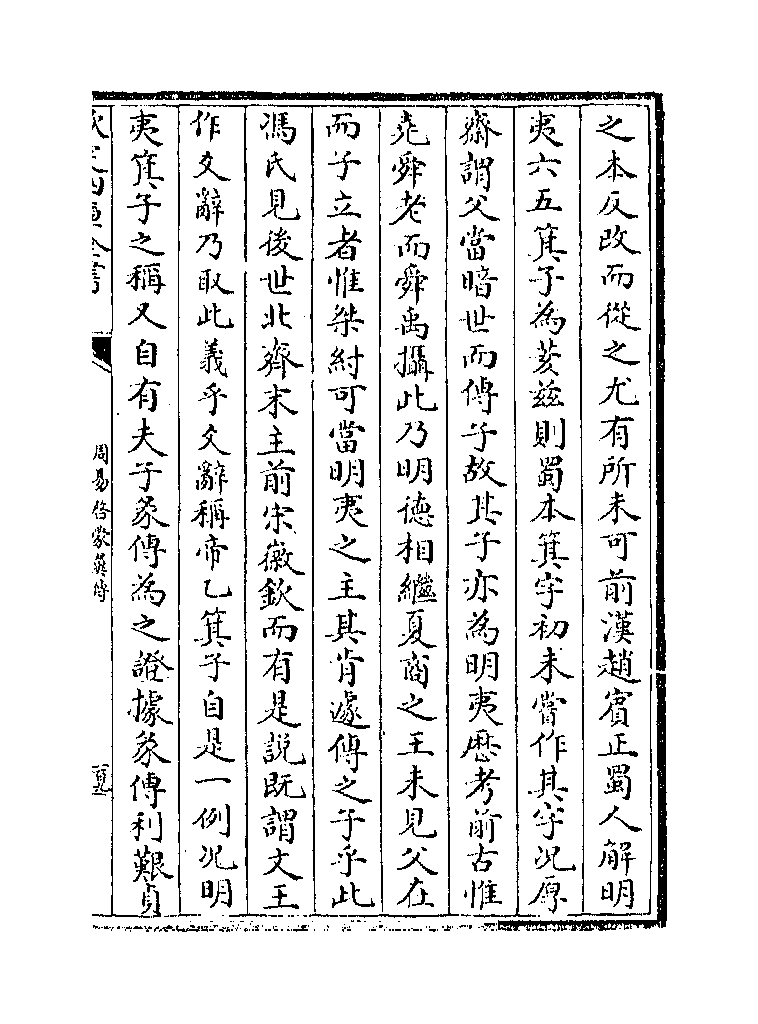 之本反改而從之尤有所未可前漢趙賔正蜀人解明
夷六五箕子為荄兹則蜀本箕字初未嘗作其字况厚
齋謂父當暗世而傳子故其子亦為明夷歴考前古惟
堯舜老而舜禹攝此乃明徳相繼夏商之王未見父在
而子立者惟桀紂可當明夷之主其肯遽傳之子乎此
馮氏見後世北齊末主前宋徽欽而有是說既謂文王
作爻辭乃取此義乎爻辭稱帝乙箕子自是一例况明
夷箕子之稱又自有夫子彖傳為之證據彖傳利艱貞
欽定四庫全書
周易啓蒙翼傳